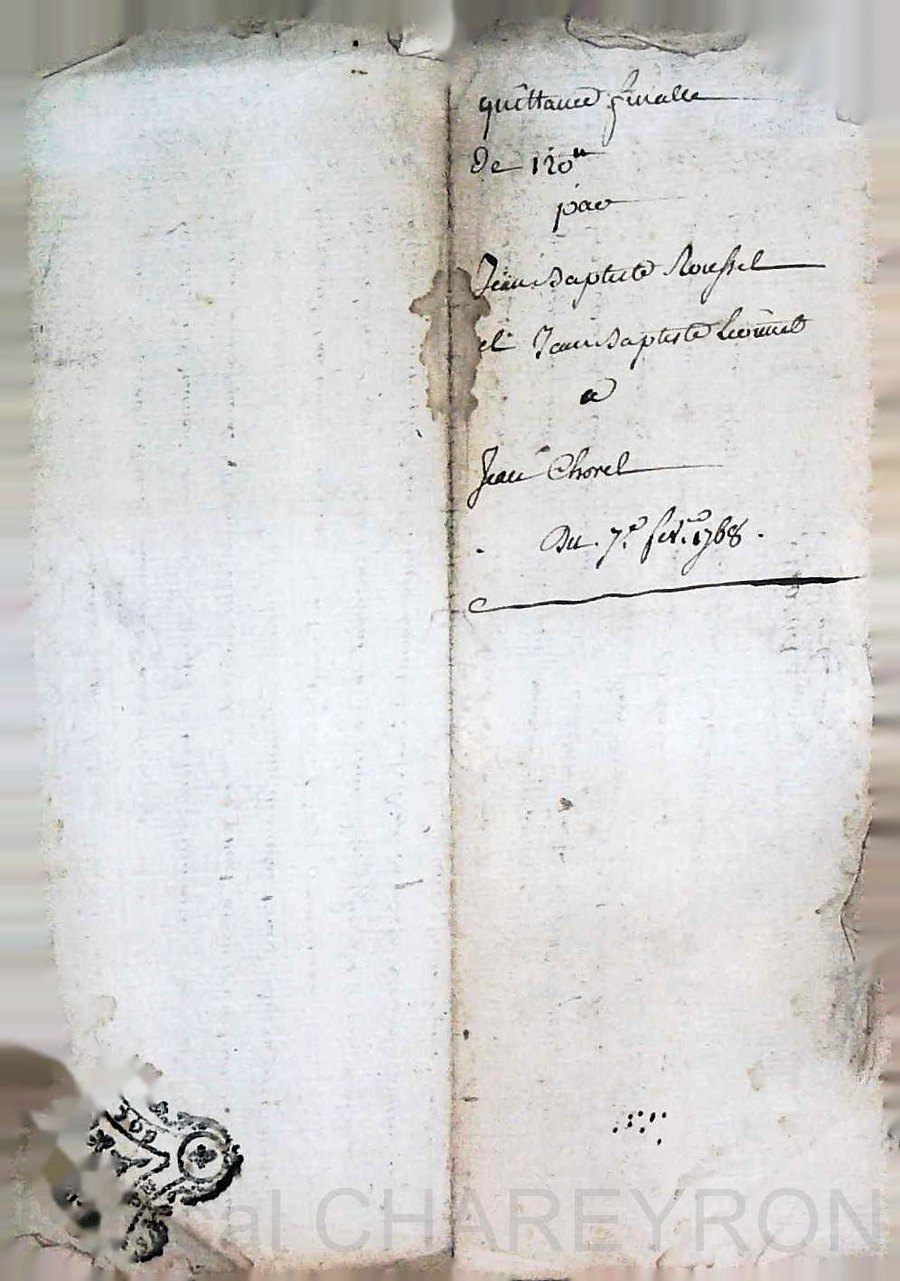 quittance finalle
De 120ᵗᵗ
par
Jean Baptiste Roussel
et Jean Baptiste
a
Jean Chorel
Du 7.e fev.er 1768.
CHAREYRON